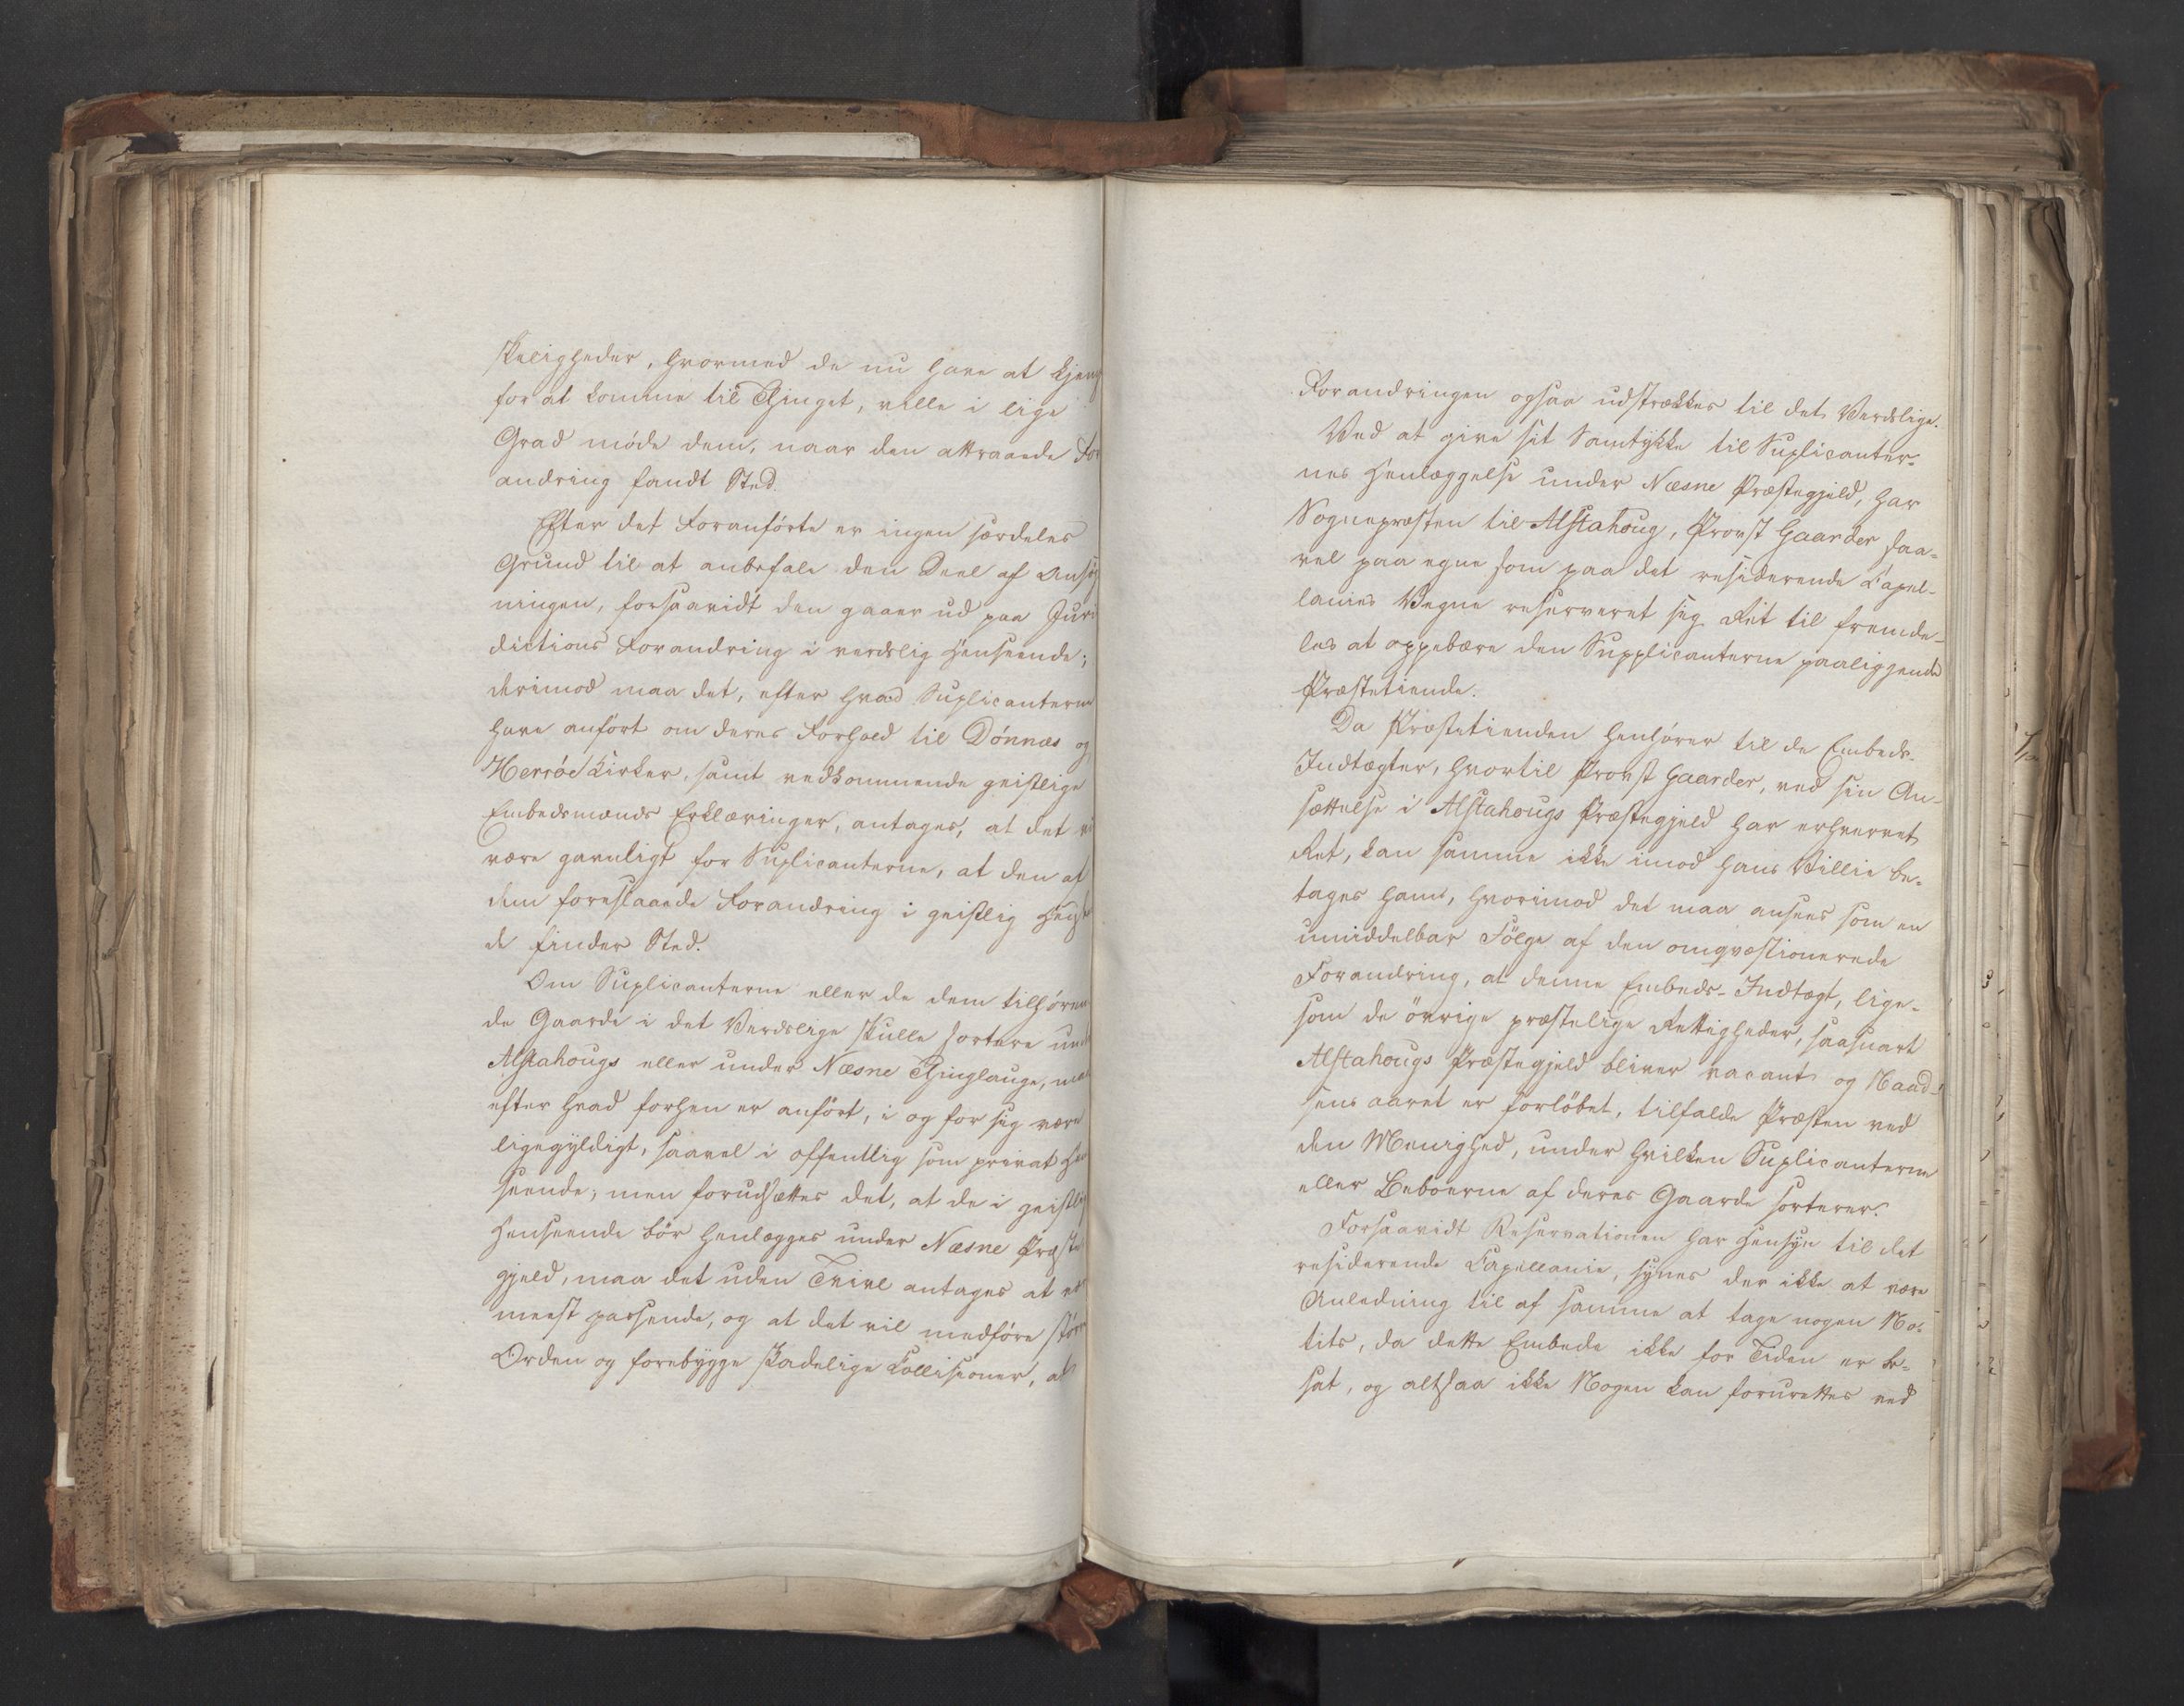 skeligheder, hvormed de nu have at kjem
for at komme til Thinget, ville i lige
Grad møde dem, naar den attraaede For
andring fandt Sted.
Efter det Foranførte er ingen særdeles
Grund til at anbefale den Deel af Ansøg
ningen, forsaavidt den gaaer ud paa Juris
dictions Forandring i verdslig Henseende;
derimod maa det, efter hvad Suplicanterne
have anført om deres Forhold til Dønnæs og
Herrøe Kirker, samt vedkommende geistlige
Embedsmænds Erklæringer, antages, at det vil
være gavnligt for Suplicanterne, at den af
dem foreslaaede Forandring i geistlig Hense
de finder Sted.
Om Suplicanterne eller de dem tilhøren
de Gaarde i det Verdslige skulle sortere und
Alstahougs eller under Næsne Thinglauge, maa
efter hvad forhen er anført, i og for sig være
ligegyldigt, saavel i offentlig som privat Hen
seende; men forudsættes det, at de i geistlig
Henseende bør henlægges under Næsne Præste
gjeld, maa det uden Tvivl antages at vær
meest passende, og at det vil medføre større
Orden og forebygge skadelige Collisioner, at
Forandringen ogsaa udstrækkes til det Verdslige.
Ved at give sit Samtykke til Suplicanter-
nes Henlæggelse under Næsne Præstegjeld, har
Sognepræsten til Alstahoug, Provst Gaarder saa-
vel paa egne som paa det residerende Capel-
lanies Vegne reserveret sig Ret til fremde-
les at oppebære den Supplicanterne paaliggende
Præstetiende.
Da Præstetienden henhører til de Embeds-
Indtægter, hvortil Provst Gaarder, ved sin An-
sættelse i Alstahougs Præstegjeld har erhvervet
Ret, kan samme ikke imod hans Villie be-
tages ham, hvorimod det maa ansees som en
umiddelbar Følge af den omqvæstionerede
Forandring, at denne Embeds-Indtægt, lige-
som de øvrige præstelige Rettigheder, saasnart
Alstahougs Præstegjeld bliver vacant og Naad-
sens aaret er forløbet, tilfalde Præsten ved
den Menighed, under hvilken Suplicanterne
eller Beboerne af deres Gaarde sorterer.
Forsaavidt Reservationen har Hensyn til det
residerende Capellanie, synes der ikke at være
Anledning til af samme at tage nogen No-
tits, da dette Embede ikke for Tiden er be-
sat, og altsaa ikke Nogen kan forurettes ved